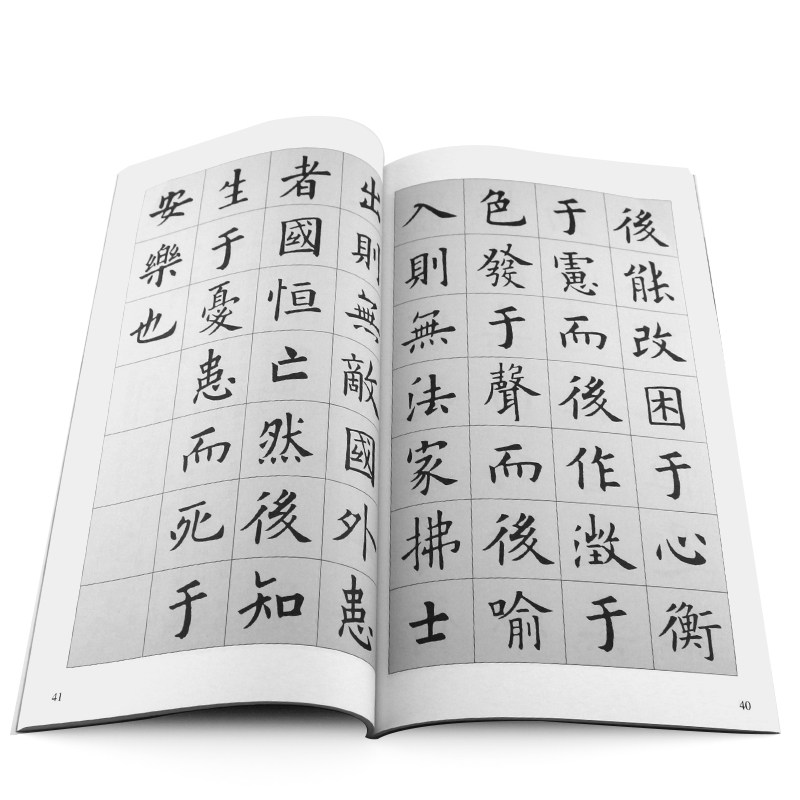 後能改困于心衡
于憲而後作澂于
色發于聲而後喻
入則無法家拂士
40
出則無敵國外患
者國恒亡然後知
生于憂患而死于
安樂也
41